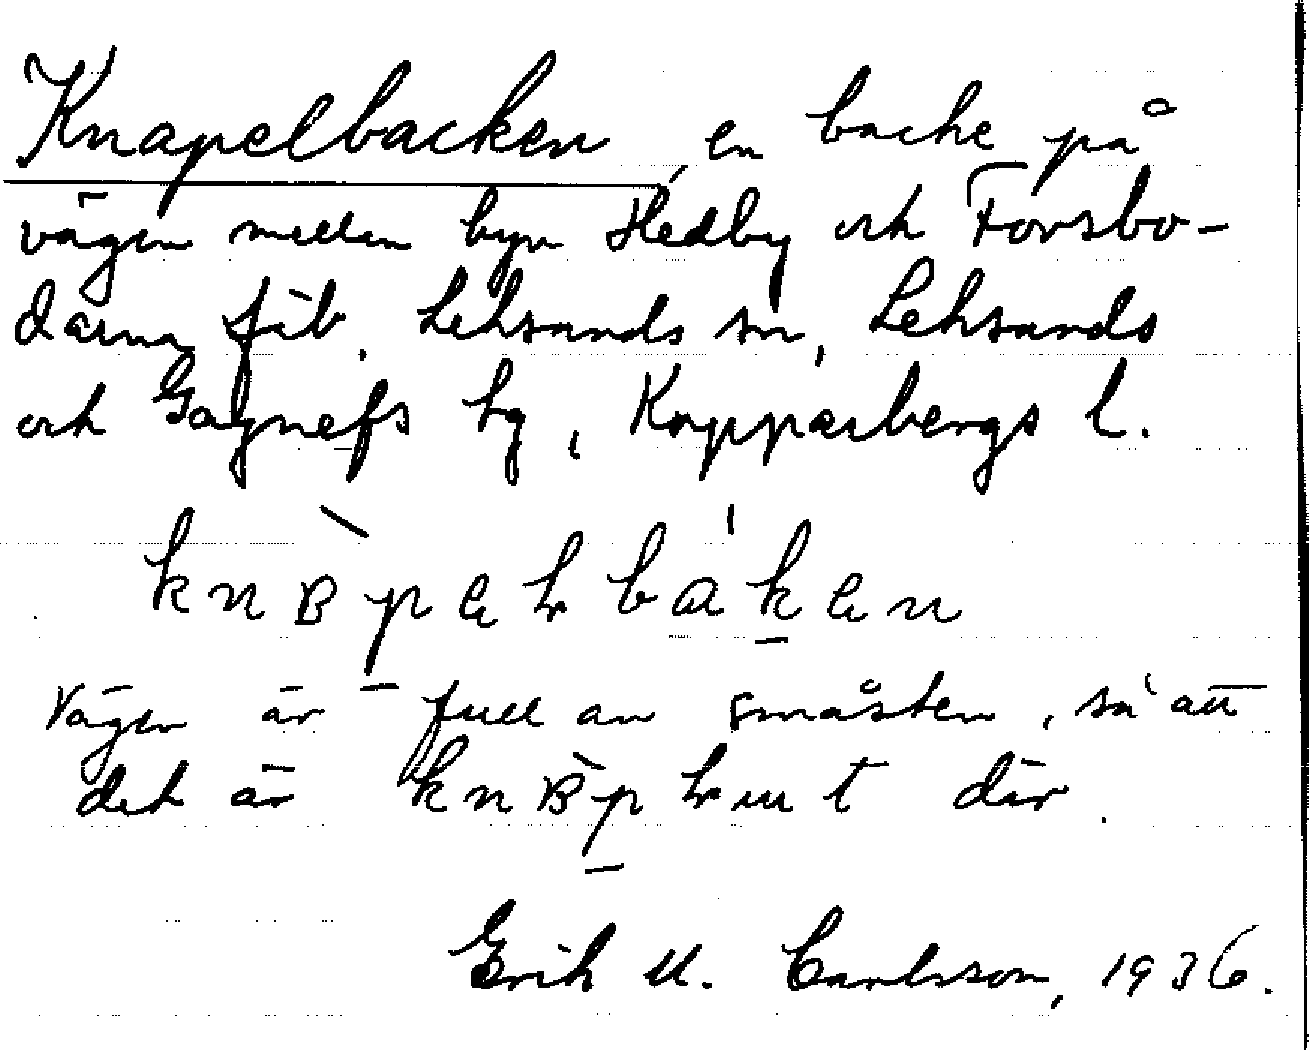 Knapelbacken, en backe på
vägen mellan byn Hedby och Forsbo-
darna fäb. Leksands sn, Leksands
och Gagnefs hg, Kopparbergs l.
Vägen är full av småsten, så att
det är där.
Erik U. Carlsson, 1936.